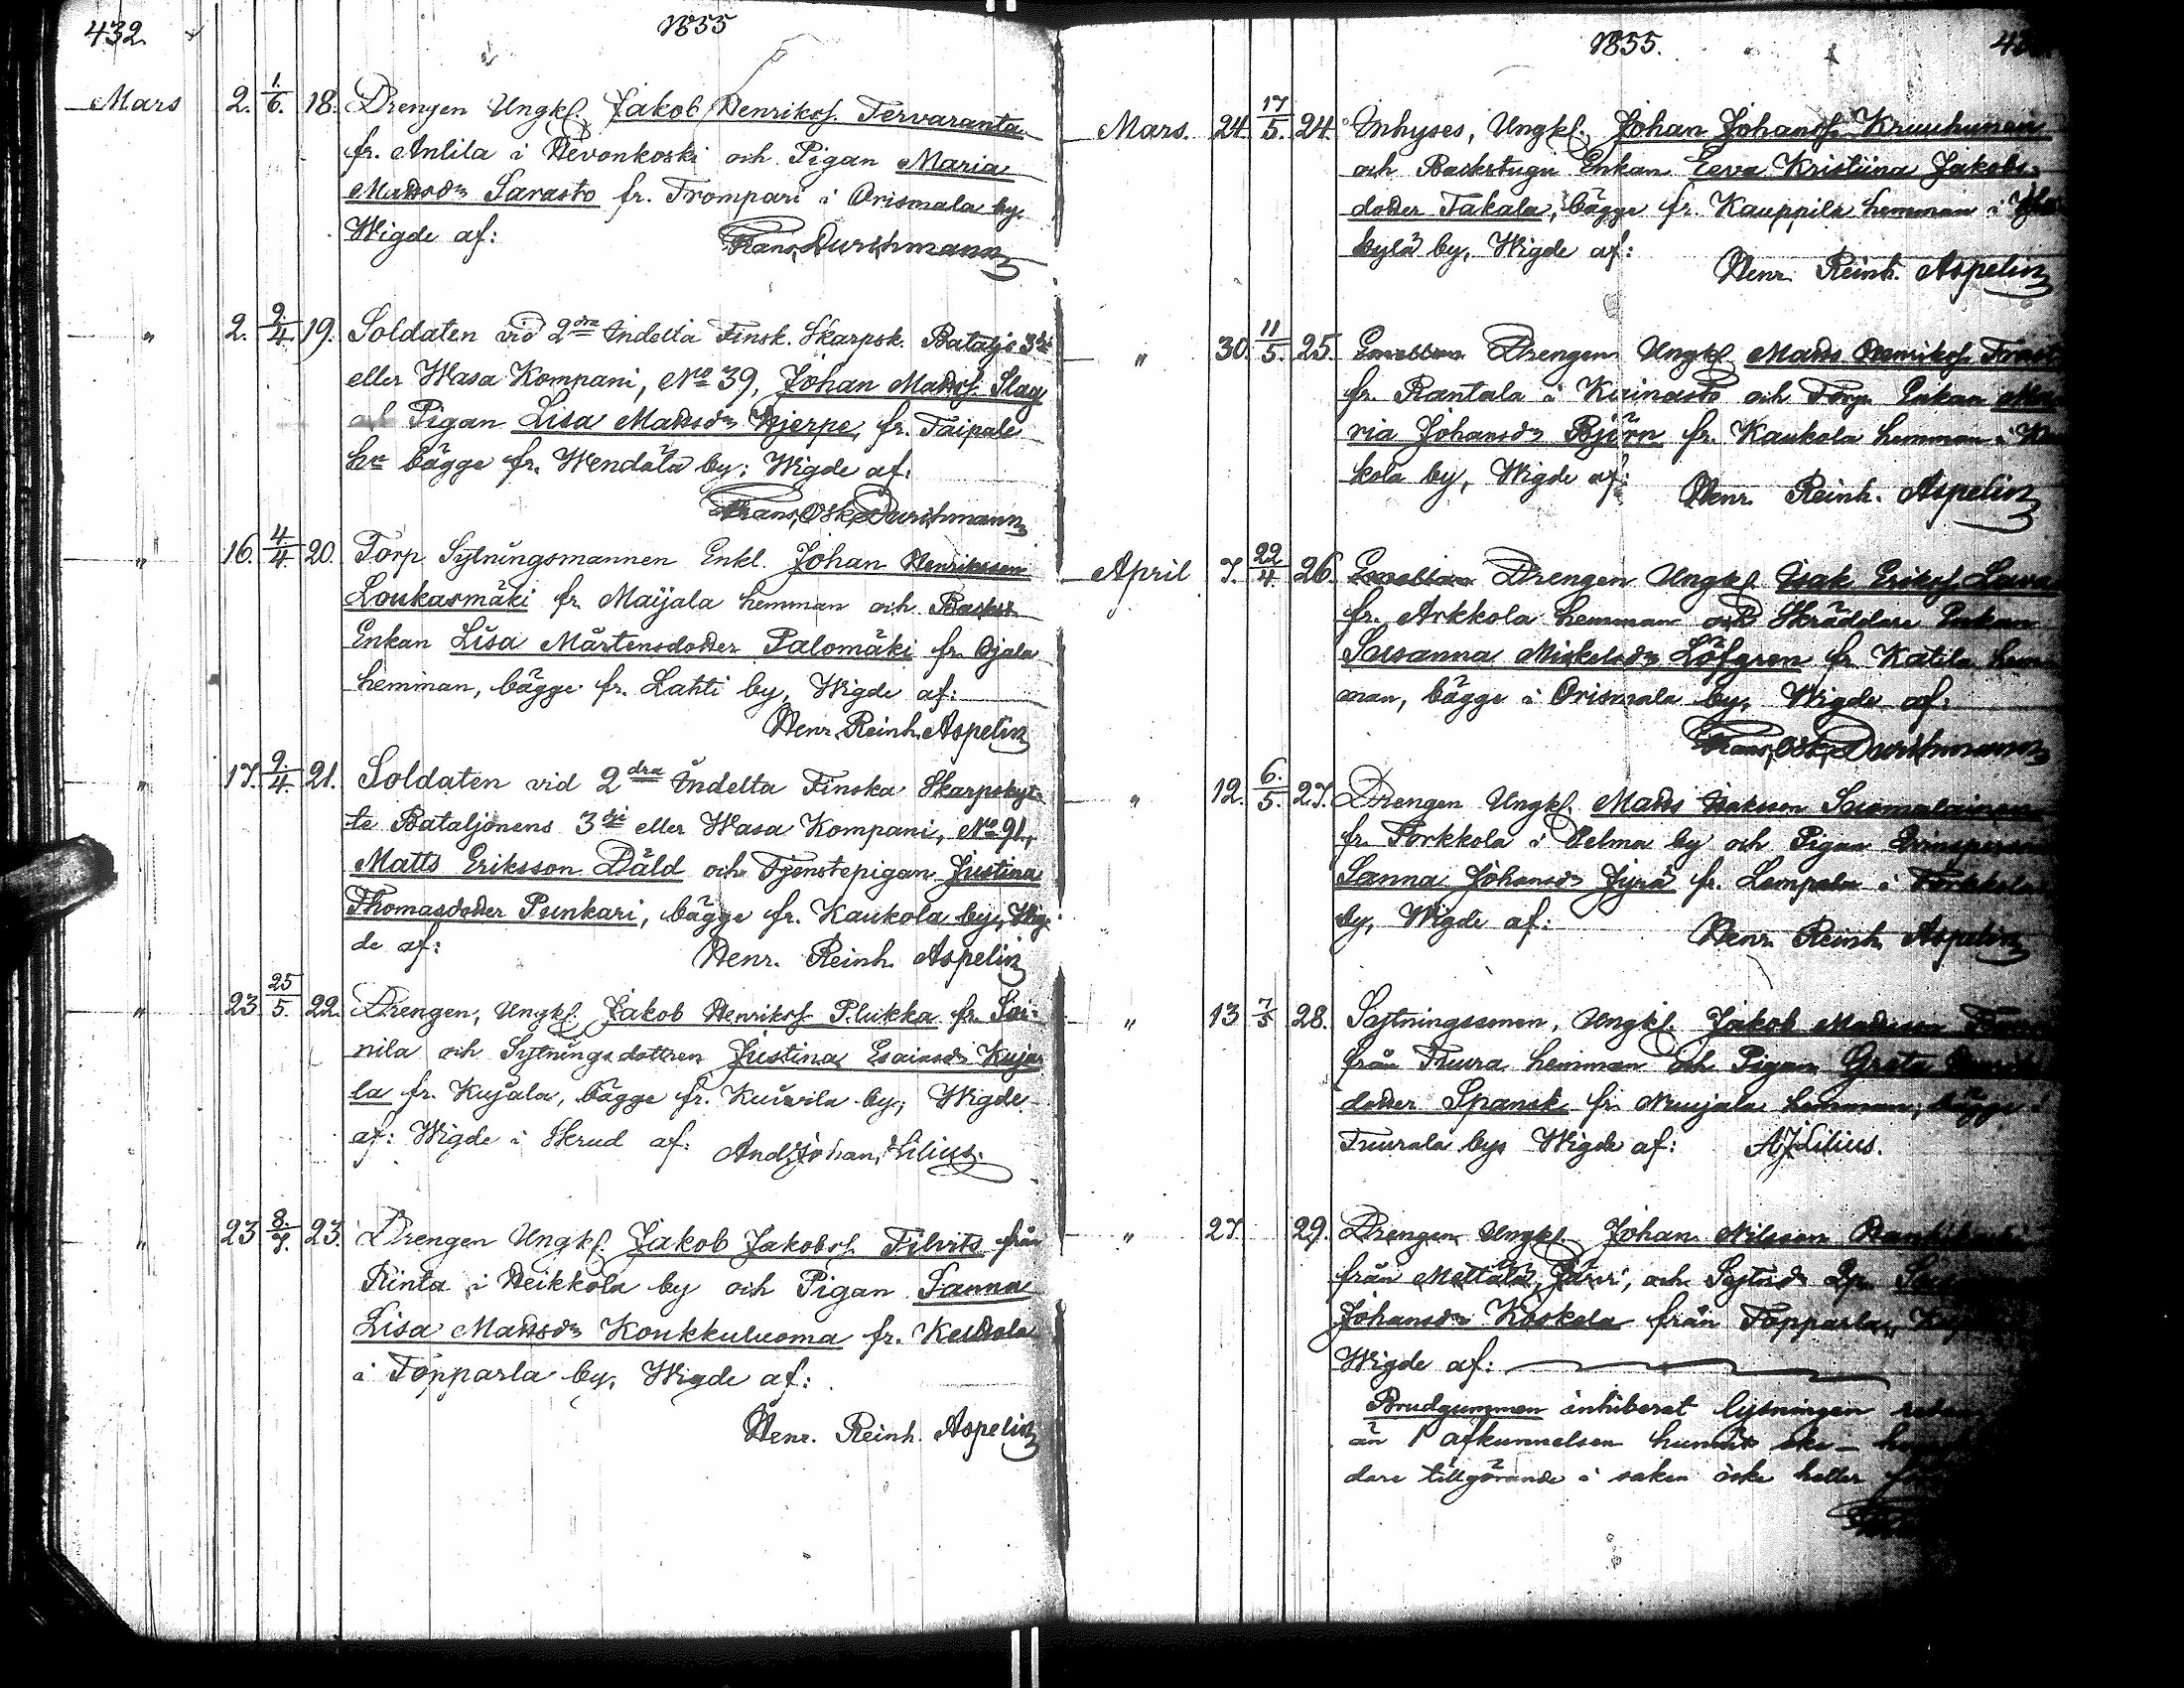 432
1855
Mars 2. 1./6. 18. Drengen Ungkl. Jakob Henrikss. Tervaranta
fr. Anlila i Hevonkoski och Pigan Maria
Mattsdr Sarasto fr. Trompari i Orismala by.
Wigde af: Frans Durchmann
" 2. 9./4. 19. Soldaten vid 2dra Indelta Finsk. Skarpsk. Batalj: 3dje
eller Wasa Kompani, No 39, Johan Matss. Slag
och Pigan Lisa Mattsdr Kjerpe, fr. Taipale
hn bägge fr. Wendälä by; Wigde af:
Frans Osk. Durchmann
" 16. 4./4. 20. Torp. Sytningsmannen Enkl. Johan Henriksson
Loukasmäki fr. Maijala hemman och Backst.
Enkan Lisa Mårtensdotter Palomäki fr. Ojala
hemman, bägge fr. Lahti by, Wigde af:
Henr. Reinh. Aspelin
" 17. 9./4. 21. Soldaten vid 2dra Indelta Finska Skarpskyt-
te Bataljonens 3dje eller Wasa Kompani, No 91,
Matts Eriksson Dåld och Tjenstepigan Justina
Thomasdotter Punkari, bägge fr. Kaukola by, Wig-
de af: Henr. Reinh. Aspelin
" 23 25/5. 22. Drengen, Ungkl. Jakob Henrikss. Plukka fr. Soi-
nila och Sytningsdottren Justina Esaiasdr Kuja-
la fr. Kujala, bägge fr. by; Wigde
af: Wigde i Skrud af: And. Johan Lilius.
" 23 8./7. 23. Drengen Ungkl. Jakob Jakobss. Filvits från
Rinta i Heikkola by och Pigan Sanna
Lisa Mattsdr Koukkuluoma fr.
i Topparla by, Wigde af:
Henr. Reinh. Aspelin
1855.
Mars. 24. 17/5. 24. Inhyses, Ungkl. Johan Johanss. Kruuhunen
och Backstugu Enkan Eeva Kristiina Jakobs-
dotter Takala, bägge fr. Kauppila hemman i
kylä by, Wigde af:
Henr. Reinh. Aspelin
" 30. 11/5. 25. Drengen Ungkl. Matts Henrikss.
fr. Rantala i Kainasto och Torp. Enkan Ma-
ria Johansdr Björn fr. Kaukola hemman i
kola by, Wigde af: Henr. Reinh. Aspelin
April 7. 22/4 26. Drengen Ungkl. Isak Erikss.
fr. Arkkola hemman och Skräddare Enkan
Susanna Mickelsdr Löfgren fr. Katila hem-
man, bägge i Orismala by, Wigde af:
Frans Osk. Durchmann
" 12. 6./5. 27. Drengen Ungkl. Matts Isaksson Suomalainen
fr. Porkkola i Pelma by och Pigan
Sanna Johansdr Jyrä fr. Lempala i
by, Wigde af: Henr. Reinh. Aspelin
" 13 7/5 28. Sytningsmen, Ungkl. Jakob Mattsson
från Tuura hemman och Pigan Greta
dotter Spansk fr. hemman, bägge i
Tuurala by. Wigde af: A J Lilius.
" 27 29. Drengen Ungkl. Johan Nilsson
från Mettälä, Järvi, och Sytnsdr
Johansdr Koskela från Topparla,
Wigde af:
Brudgummen inhiberat lysningen
än 1 afkunnelsen hunnit ske —
dare tillgörande i saken